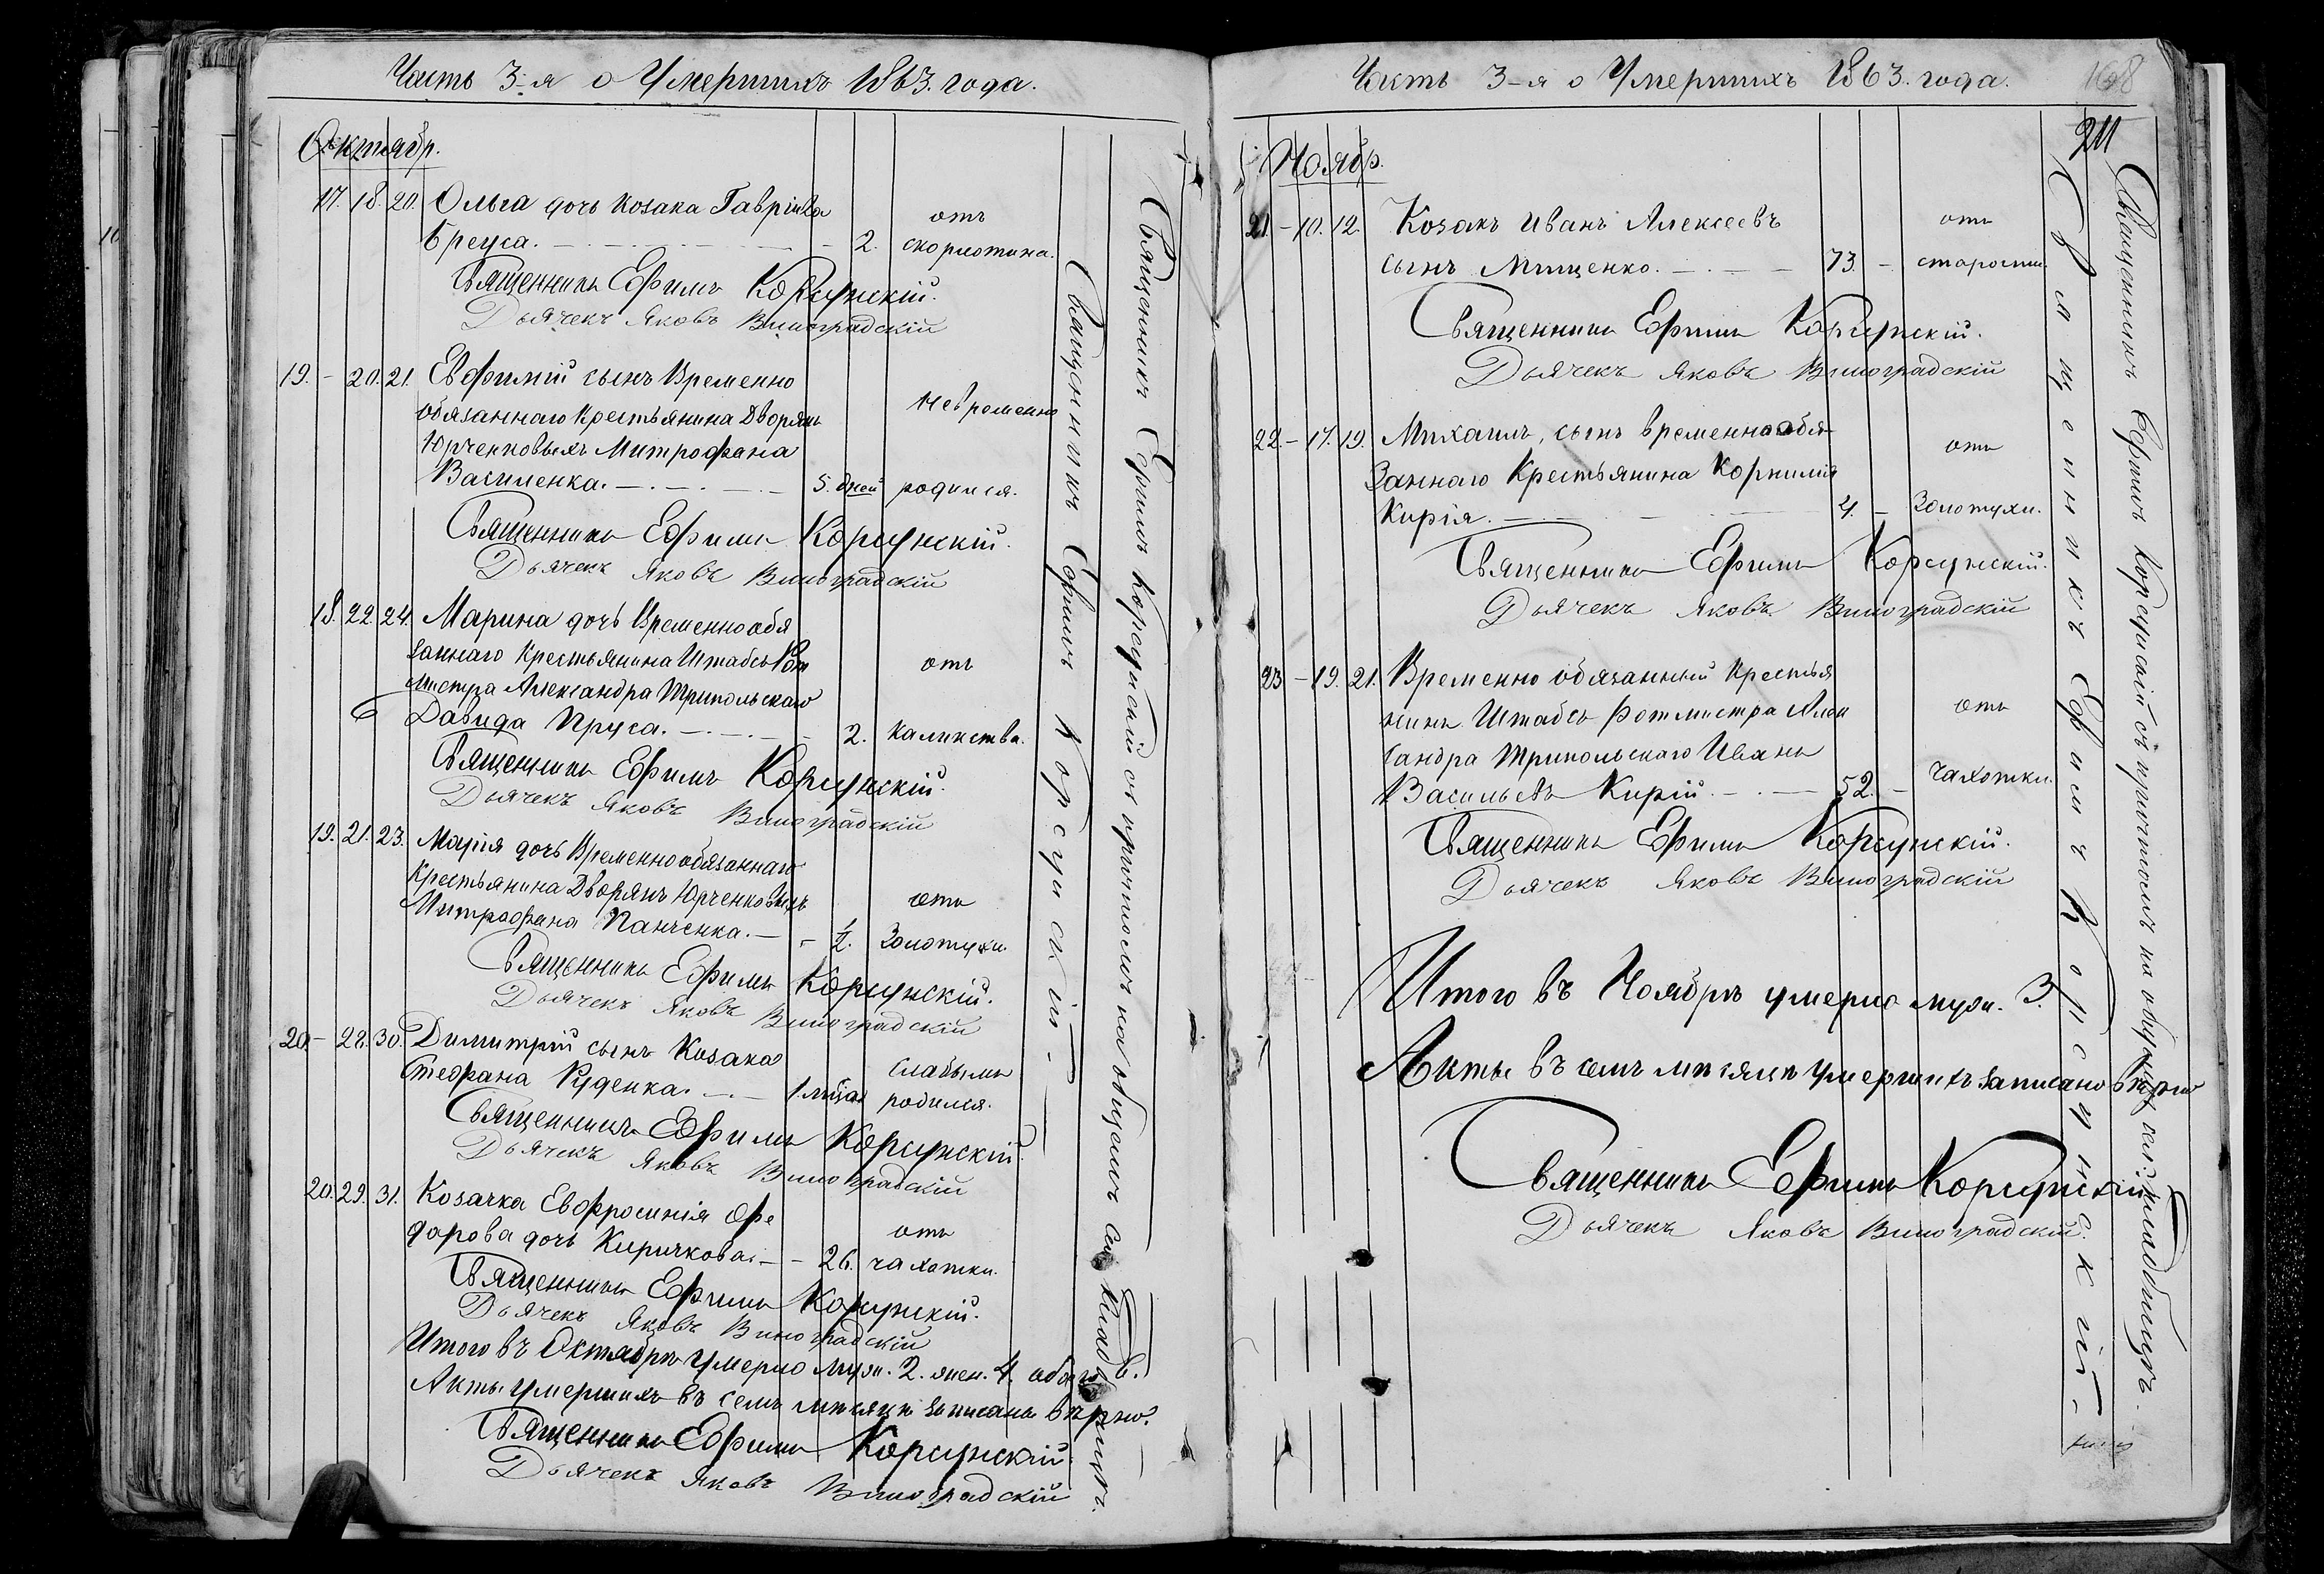 Часть 3-я о Умершихъ 1863. года.
Октябр.
17. 18. 20. Ольга дочь Козака Гавріила отъ
Бреуса. 2. скорлотина.
Священникъ Ефимъ Корсунскій.
Дьячекъ Яковъ Виноградскій
19. - 20. 21. Евфимій сынъ Временно
обязаннаго Крестьянина Дворянъ Невременно
Юрченковыхъ Митрофана
Василенка. 5. дней родился.
Священникъ Ефимъ Корсунскій.
Дьячекъ Яковъ Виноградскій
18. 22. 24. Марина дочь Временнообя
заннаго Крестьянина Штабсъ Рот отъ
мистра Александра Трипольскаго
Давида Пруса. 2. калитства.
Священникъ Ефимъ Корсунскій.
Дьячекъ Яковъ Виноградскій
19. 21. 23. Марія дочь Временнообязаннаго
Крестьянина Дворянъ Юрченковыхъ отъ
Митрофана Панченка. - 1/2. Золотухи.
Священникъ Ефимъ Корсунскій.
Дьячекъ Яковъ Виноградскій
20. - 28. 30. Димитрій сынъ Козака Слабымъ
Стефана Руденка. 1 мѣсяц родился.
Священникъ Ефимъ Корсунскій.
Дьячекъ Яковъ Виноградскій
20. 29. 31. Козачка Евфросинія Фе отъ
дорова дочь Киричкова. - 26. чахотки.
Священникъ Ефимъ Корсунскій.
Дьячекъ Яковъ Виноградскій
Итого въ Октябрѣ умерло муж. 2. жен. 4. обоего 6.
Акты умершихъ въ семъ мѣсяцѣ записаны вѣрно.
Священникъ Ефимъ Корсунскій
Дьячекъ Яковъ Виноградскій
Священникъ Ефимъ Корсунскій.
Священникъ Ефимъ Корсунскій съ причтомъ на общемъ кладбищѣ.
Часть 3-я о Умершихъ 1863. года.
168
211
Ноябр.
21. - 10. 12. Козакъ Иванъ Алексеевъ отъ
сынъ Мищенко. 73. - старости.
Священникъ Ефимъ Корсунскій.
Дьячекъ Яковъ Виноградскій
22. - 17. 19. Михаилъ, сынъ временнообя отъ
заннаго Крестьянина Корнилія
Кирія. 4. - Золотухи.
Священникъ Ефимъ Корсунскій.
Дьячекъ Яковъ Виноградскій
23 - 19. 21. Временно обязанный Крестья
нинъ Штабсъ Ротмистра Алек отъ
сандра Трипольскаго Иванъ
Васильевъ Кирій. 52. - чахотки.
Священникъ Ефимъ Корсунскій.
Дьячекъ Яковъ Виноградскій
Итого въ Ноябрѣ умерло муж. 3.
Акты въ семъ мѣсяцѣ умершихъ записано вѣрно
Священникъ Ефимъ Корсунскій
Дьячекъ Яковъ Виноградскій.
Священникъ Ефимъ Корсунскій.
Священникъ Ефимъ Корсунскій съ причтомъ на общемъ кладбищѣ.